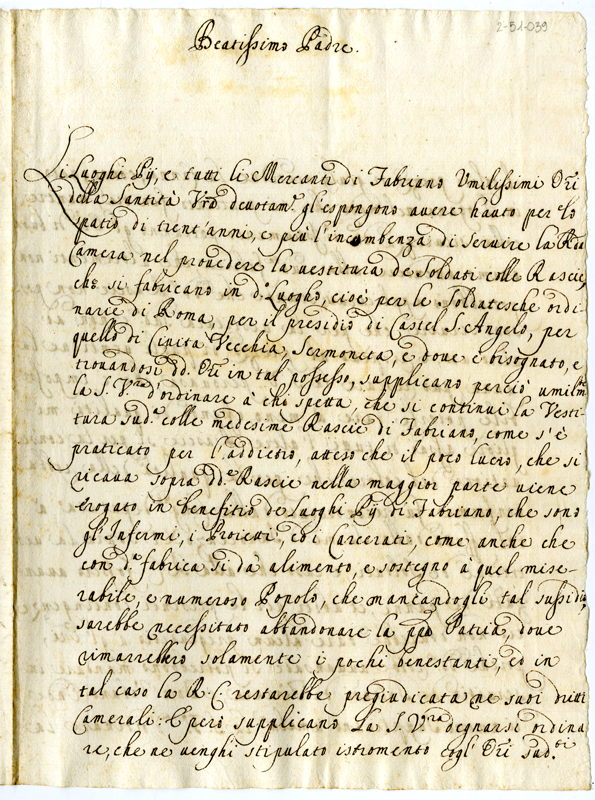 2-51-039
Beatissimo Padre.
Li Luoghi Pij, e tutti li Mercanti di Fabriano Umilissimi Ori
della Santità Vra devotam.e gl'espongono avere hauto per lo
spatio di trent'anni, e più l'incombenza di servire la Rda
Camera nel provedere la vestitura de Soldati colle Rascie,
che si fabricano in d.o Luogho, cioè per le Soldatesche ordi-
narie di Roma, per il presidio di Castel S. Angelo, per
quello di Civita Vecchia, Sermoneta, e dove è bisognato, e
trovandosi dd. Ori in tal possesso, supplicano perciò umilm.e
la S. V.ra d'ordinare à chi spetta, che si continui la Vesti-
tura sud.a colle medesime Rascie di Fabriano, come s'è
praticato per l'addietro, atteso che il poco lucro, che si
ricava sopra dd.e Rascie nella maggior parte viene
erogato in benefitio de Luoghi Pij di Fabriano, che sono
gl'Infermi, i Proietti, ed i Carcerati, come anche che
con d.a fabrica si dà alimento, e sostegno à quel mise-
rabile, e numeroso Popolo, che mancandogli tal sussidio,
sarebbe necessitato abbandonare la ppa Patria, dove
rimarrebbero solamente i pochi benestanti, ed in
tal caso la R. C. restarebbe pregiudicata ne suoi dritti
Camerali: E però supplicano la S. V.ra degnarsi ordina
re, che ne venghi stipulato istromento cogl'Ori sud.ti